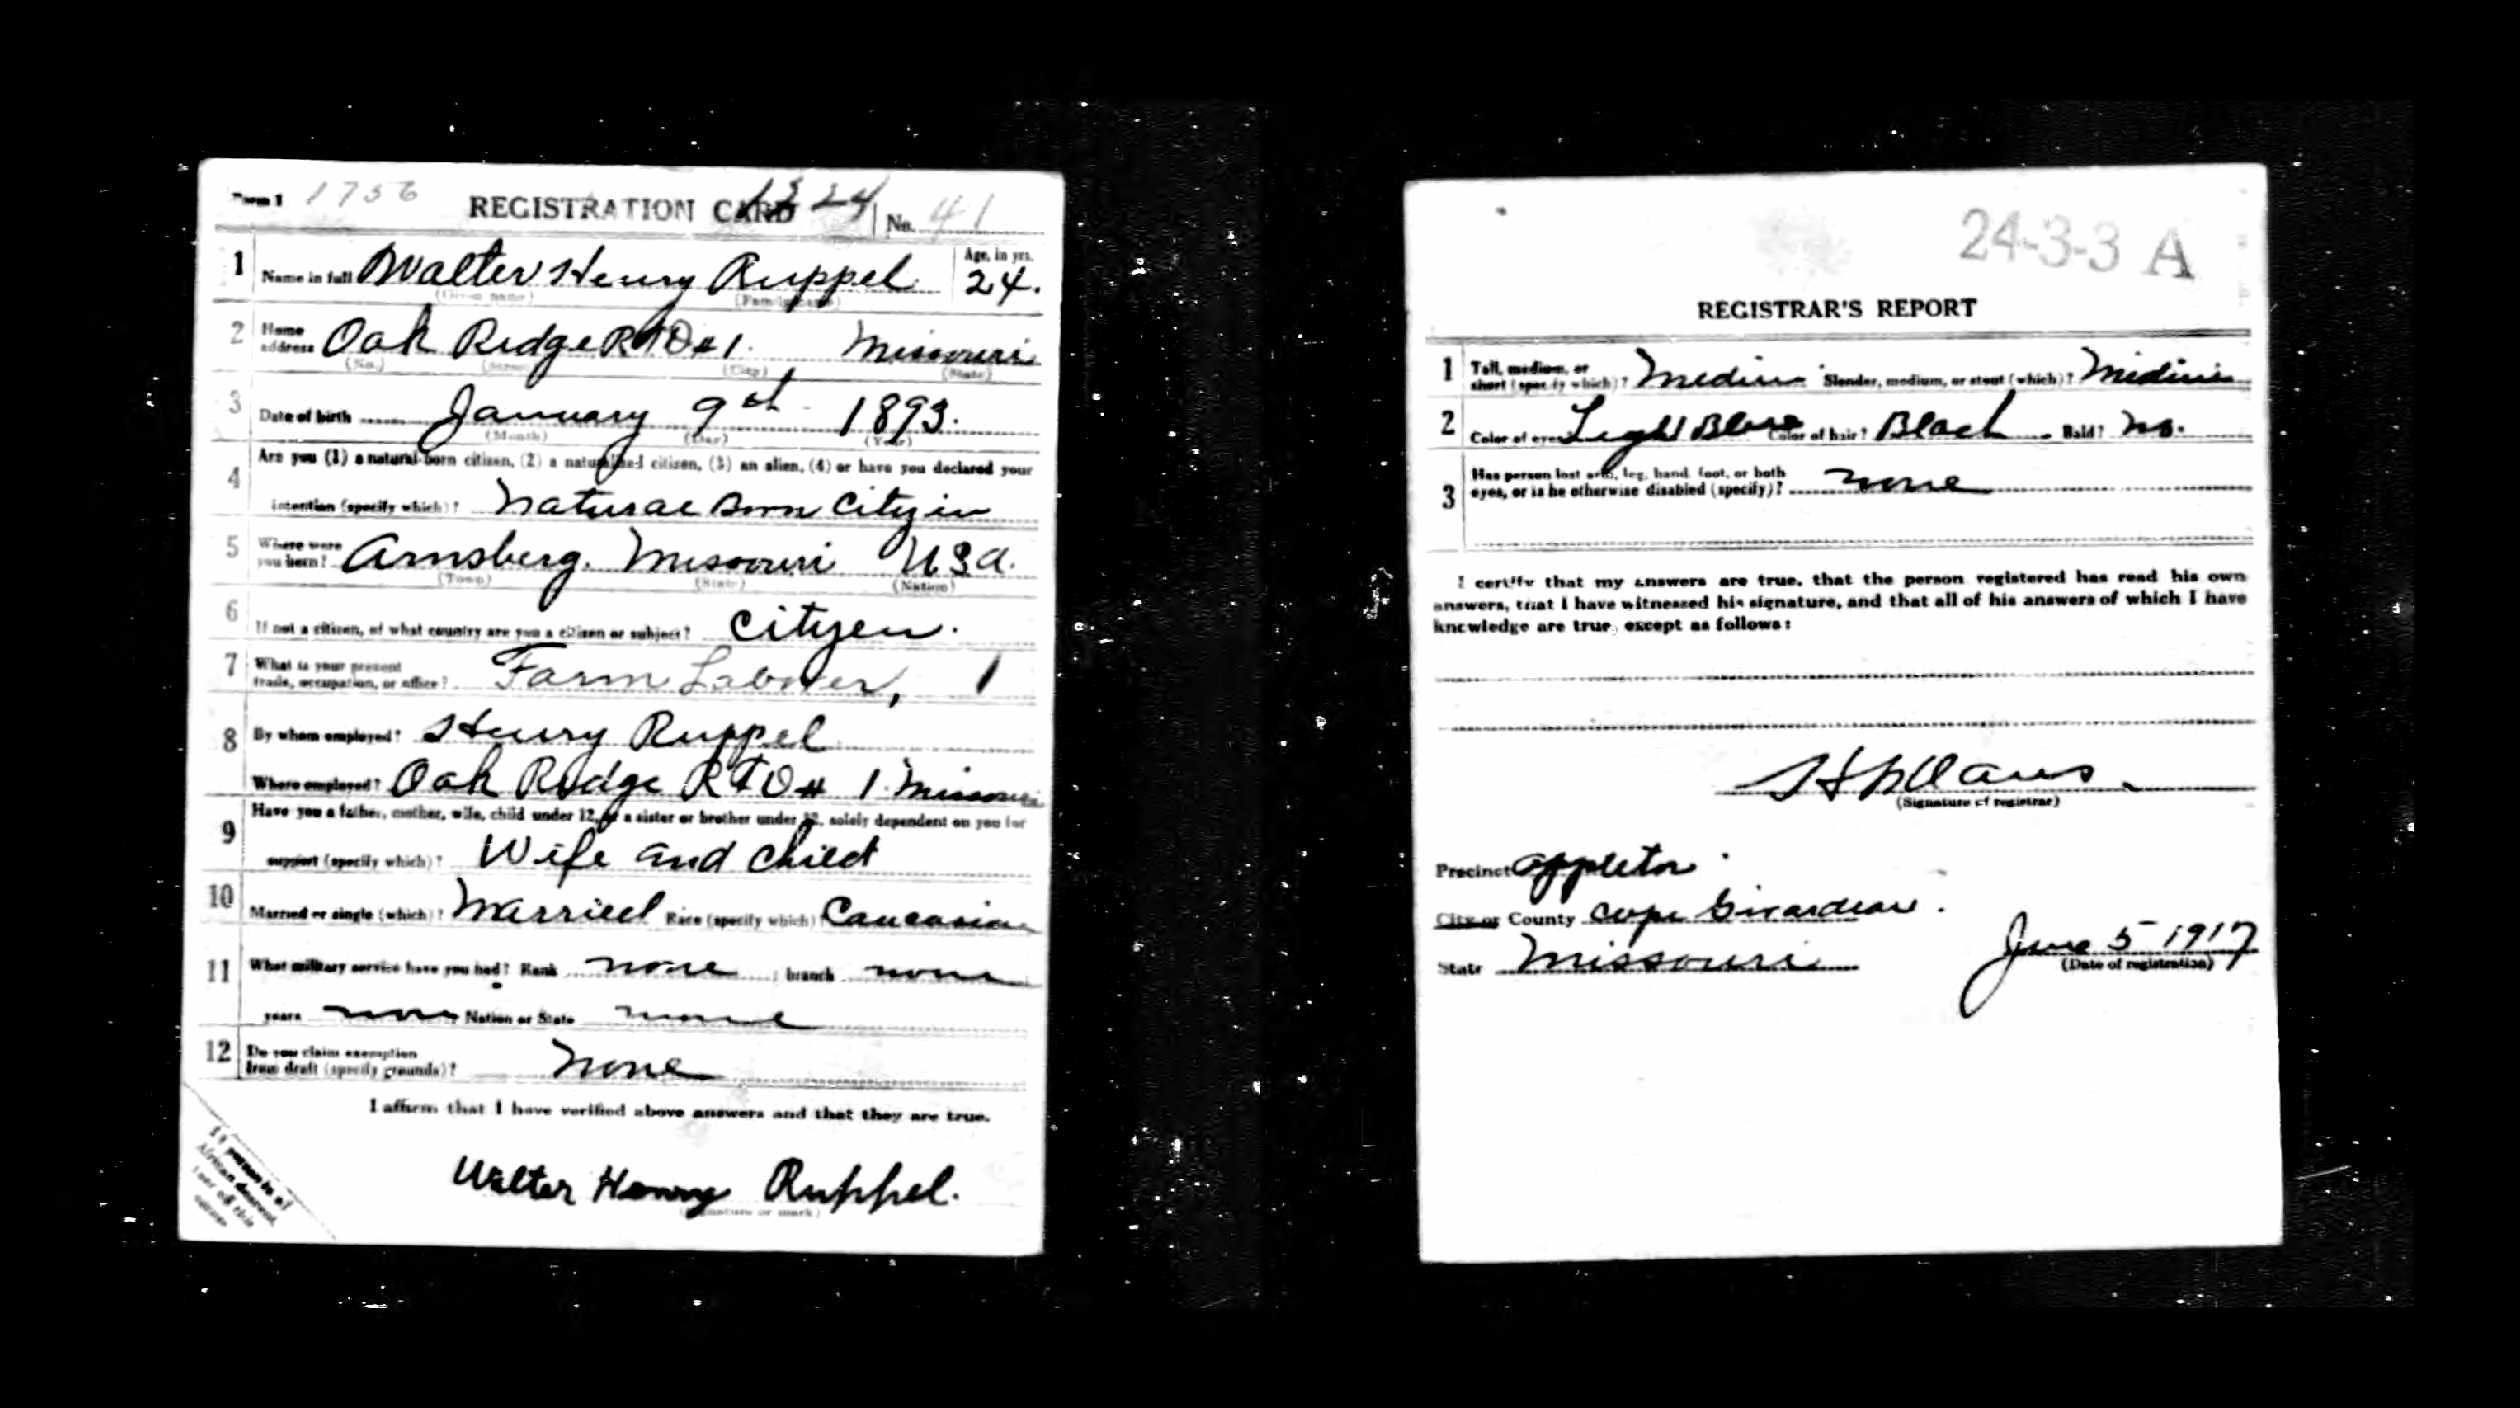 Form 1 1756 REGISTRATION CARD 1324 No. 41
1 Name in full Walter Henry Ruppel Age, in yrs. 24.
(Given name) (Family name)
2 Home address Oak Ridge RFD#1. Missouri
(No.) (Street) (City) (State)
3 Date of birth January 9st 1893.
(Month) (Day) (Year)
4 Are you (1) a natural-born citizen, (2) a naturalized citizen, (3) an alien, (4) or have you declared your
intention (specify which)? Natural Born Cityin
5 Where were you born? Arnsberg. Missouri USA.
(Town) (State) (Nation)
6 If not a citizen, of what country are you a citizen or subject? Cityen.
7 What is your present
trade, occupation, or office? Farm Laborer, 1
8 By whom employed? Henry Ruppel
Where employed? Oak Rodge RFD# 1. Missouri
9 Have you a father, mother, wife, child under 12, or a sister or brother under 12, solely dependent on you for
support (specify which)? Wife and Child
10 Married or single (which)? Married Race (specify which) Caucasian
11 What military service have you had? Rank none ; branch none
years none Nation or State none
12 Do you claim exemption
from draft (specify grounds)? None
I affirm that I have verified above answers and that they are true.
Walter Henry Ruppel.
(Signature or mark)
If person is of
African descent,
tear off this
corner
24-3-3 A
REGISTRAR'S REPORT
1 Tall, medium, or
short (specify which)? Medium Slender, medium, or stout (which)? Medium
2 Color of eyes Light Blue Color of hair? Black Bald? No.
3 Has person lost arm, leg, hand, foot, or both
eyes, or is he otherwise disabled (specify)? none
I certify that my answers are true, that the person registered has read his own
answers, that I have witnessed his signature, and that all of his answers of which I have
knowledge are true, except as follows:
(Signature of registrar)
Precinct Appleton
City or County Cape Girardeau.
State Missouri June 5 1917
(Date of registration)